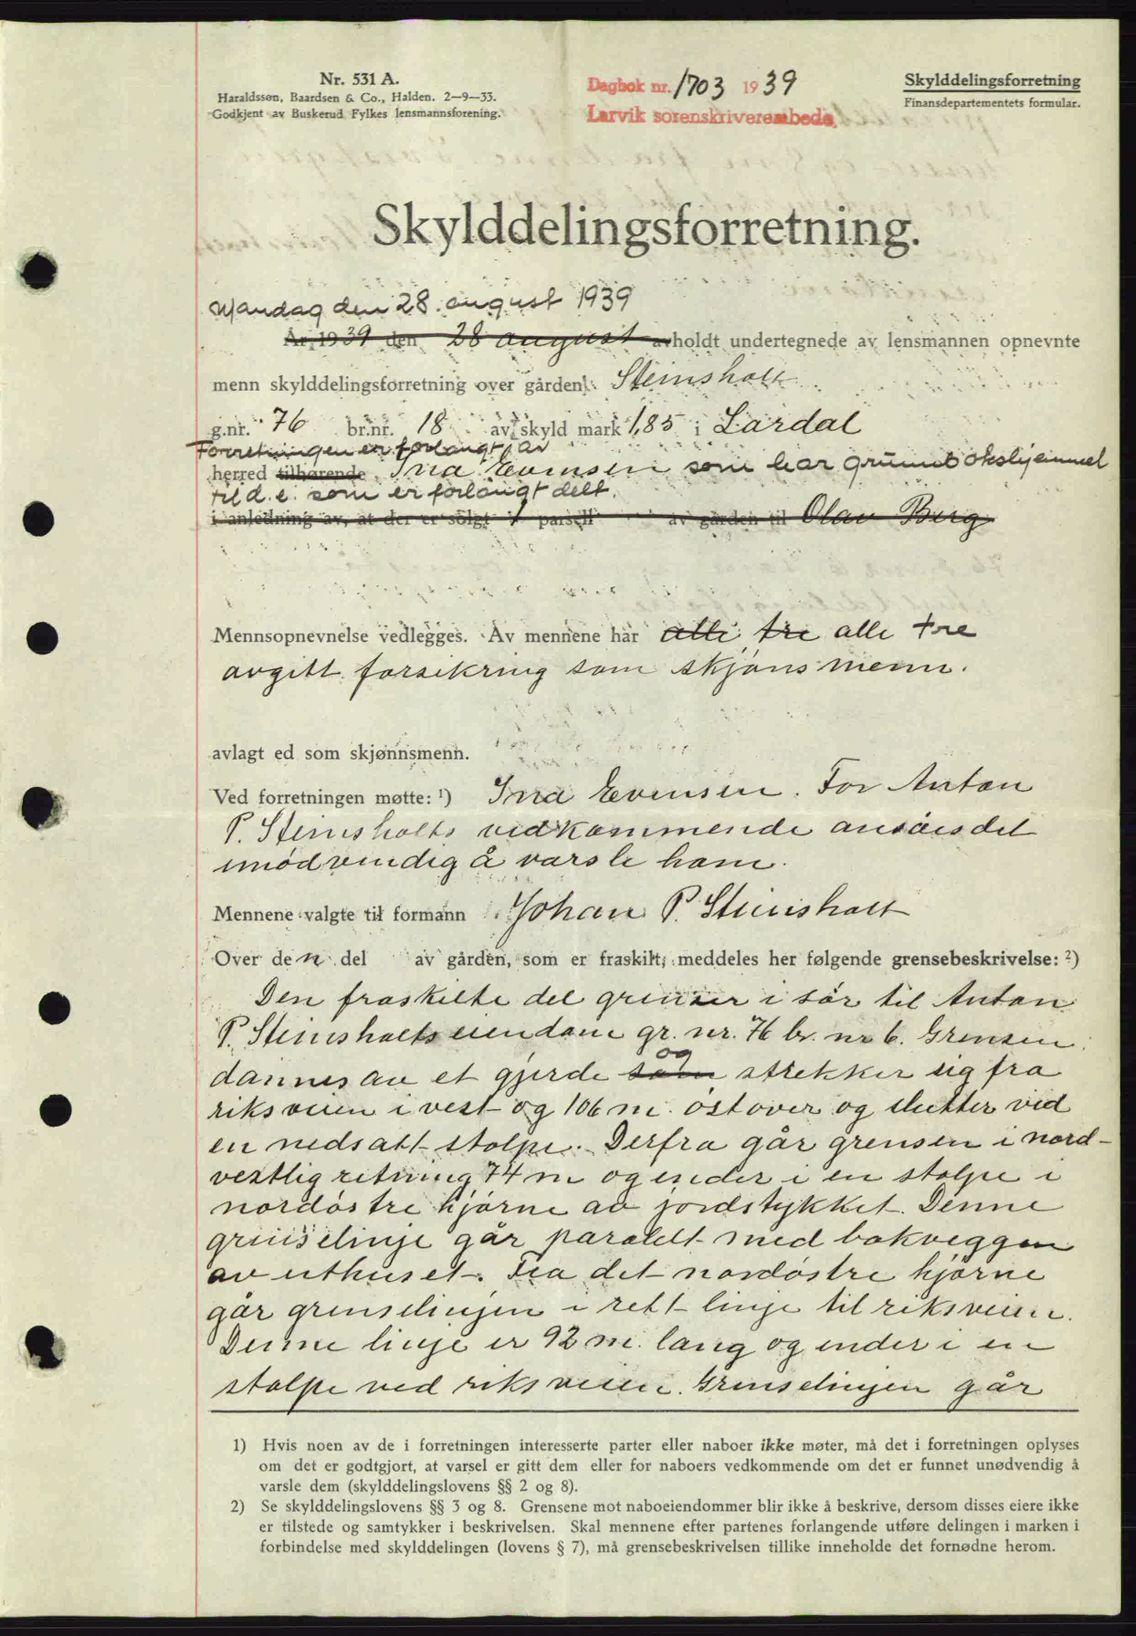 Nr. 531 A.
Haraldsson, Baardsen & Co., Halden. 2—9—33.
Godkjent av Buskerud Fylkes lensmannsforening.
Dagbok nr. 1703 1939
Larvik sorenskriverembede.
Skylddelingsforretning
Finansdepartementets formular.
Skylddelingsforretning.
Mandag den 28. august 1939
År 1939 den 28 august avholdt undertegnede av lensmannen opnevnte
menn skylddelingsforretning over gården Steinsholt
g.nr. 76 br.nr. 18 av skyld mark 1,85 i Lardal
Forretningen er forlangt av
herred tilhørende Ina Evensen som har grunnbokshjemmel
til d. e. som er forlangt delt.
i anledning av, at der er solgt 1 parsell av gården til Olav Berg
Mennsopnevnelse vedlegges. Av mennene har alle tre alle tre
avgitt forsikring som skjønsmenn.
avlagt ed som skjønnsmenn.
Ved forretningen møtte: ¹) Ina Evensen. For Anton
P. Steinsholts vedkommende ansåes det
unødvendig å varsle ham.
Mennene valgte til formann Johan P. Steinsholt
Over den del av gården, som er fraskilt, meddeles her følgende grensebeskrivelse: ²)
Den fraskilte del grenser i sør til Anton
P. Steinsholts eiendom gr. nr. 76 br. nr 6. Grensen
dannes av et gjerde som og strekker sig fra
riksveien i vest og 106 m. østover og slutter ved
en nedsatt stolpe. Derfra går grensen i nord-
vestlig retning 74 m og ender i en stolpe i
nordøstre hjørne av jordstykket. Denne
grenselinje går paralelt med bakveggen
av uthuset. Fra det nordøstre hjørne
går grenselinjen i rett linje til riksveien.
Denne linje er 92 m. lang og ender i en
stolpe ved riksveien. Grenselinjen går
1) Hvis noen av de i forretningen interesserte parter eller naboer ikke møter, må det i forretningen oplyses
om det er godtgjort, at varsel er gitt dem eller for naboers vedkommende om det er funnet unødvendig å
varsle dem (skylddelingslovens §§ 2 og 8).
2) Se skylddelingslovens §§ 3 og 8. Grensene mot naboeiendommer blir ikke å beskrive, dersom disses eiere ikke
er tilstede og samtykker i beskrivelsen. Skal mennene efter partenes forlangende utføre delingen i marken i
forbindelse med skylddelingen (lovens § 7), må grensebeskrivelsen tillike inneholde det fornødne herom.